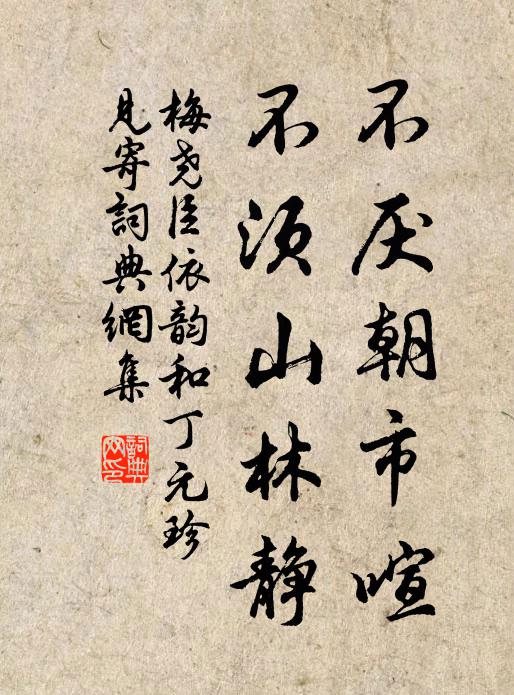 不厌朝市喧
不须山林静
梅尧臣依韵和丁元珍
见寄詞典網集
詞典网印